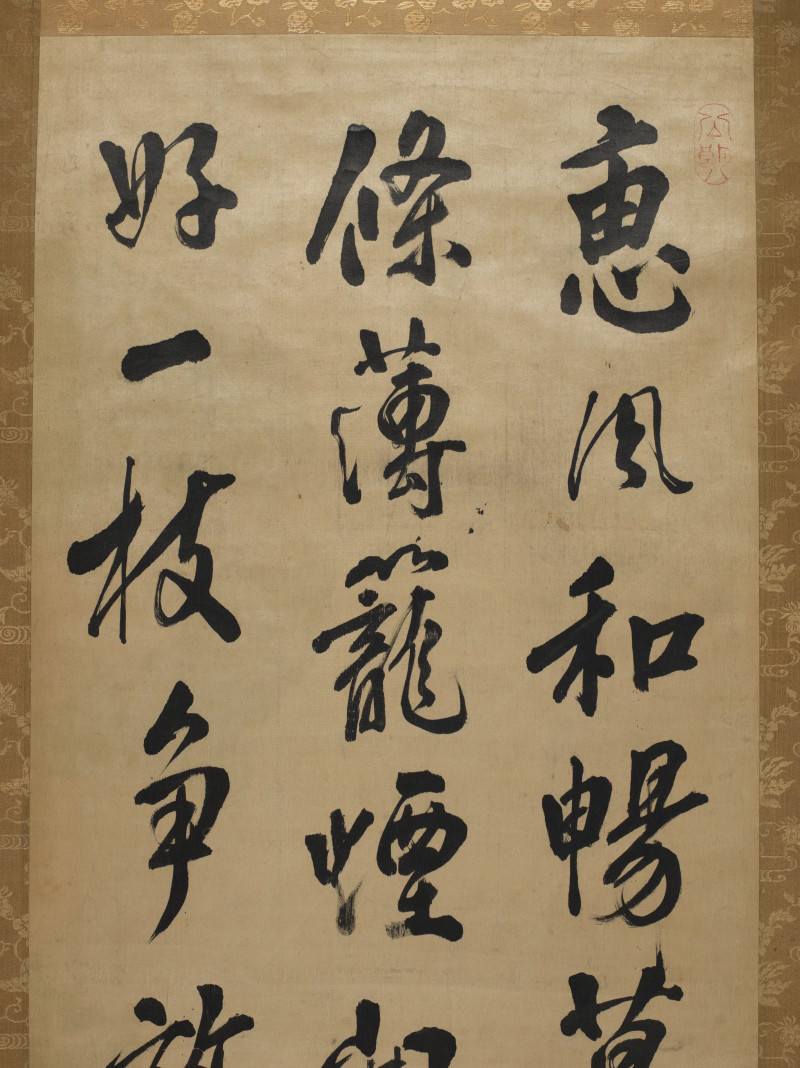 惠風和暢
條薄籠煙
好一枝争放